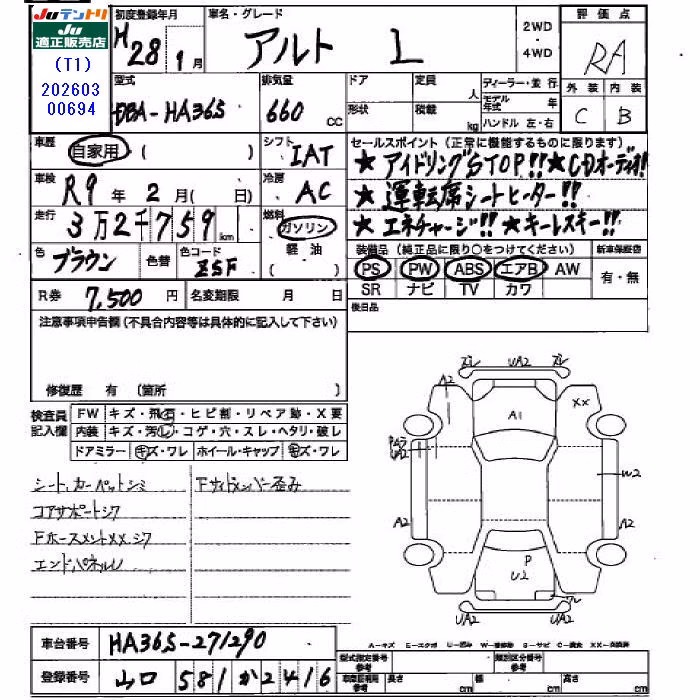 Juテントリ
Ju
適正販売店
(T1)
202603
00694
初度登録年月
H28年1月
車名・グレード
アルト L
2WD
・
4WD
評価点
RA
外装 内装
C B
型式
DBA-HA36S
排気量
660 cc
ドア
形状
定員 人
積載 kg
ディーラー・並行
モデル年式 年
ハンドル 左・右
車歴
自家用 ( )
シフト
IAT
セールスポイント(正常に機能するものに限ります)
★アイドリングSTOP!!★CDオーディオ!!
★運転席シートヒーター!!
★エネチャージ!!★キーレスキー!!
車検
R9年2月( 日)
冷房
AC
走行
3万2千759km
燃料
ガソリン
軽油
( )
色
ブラウン
色替
色コード
ZSF
装備品(純正品に限り○をつけてください)
新車保証書
PS PW ABS エアB AW
SR ナビ TV カワ
有・無
R券 7,500円
名変期限 月 日
後日品
注意事項申告欄(不具合内容等は具体的に記入して下さい)
修復歴 有 (箇所 )
検査員
記入欄
FW キズ・飛石・ヒビ割・リペア跡・X要
内装 キズ・汚れ・コゲ・穴・スレ・ヘタリ・破レ
ドアミラー キズ・ワレ ホイール・キャップ キズ・ワレ
シート、カーペットシミ
Fサイドメンバー歪み
コアサポートシワ
FホースメントXX、シワ
エンドパネルU
ズレ UA2 ズレ
A2
XX
A1
UA2
W2
A2
A2
P
U2
UA2 UA2
車台番号 HA36S-271290
登録番号 山口 581 か 2416
A-キズ E-エクボ U-凹み W-補修跡 S-サビ C-腐食 XX-交換済
型式指定番号
参考
類別区分番号
参考
車庫証明用
参考
長さ cm
幅 cm
高さ cm